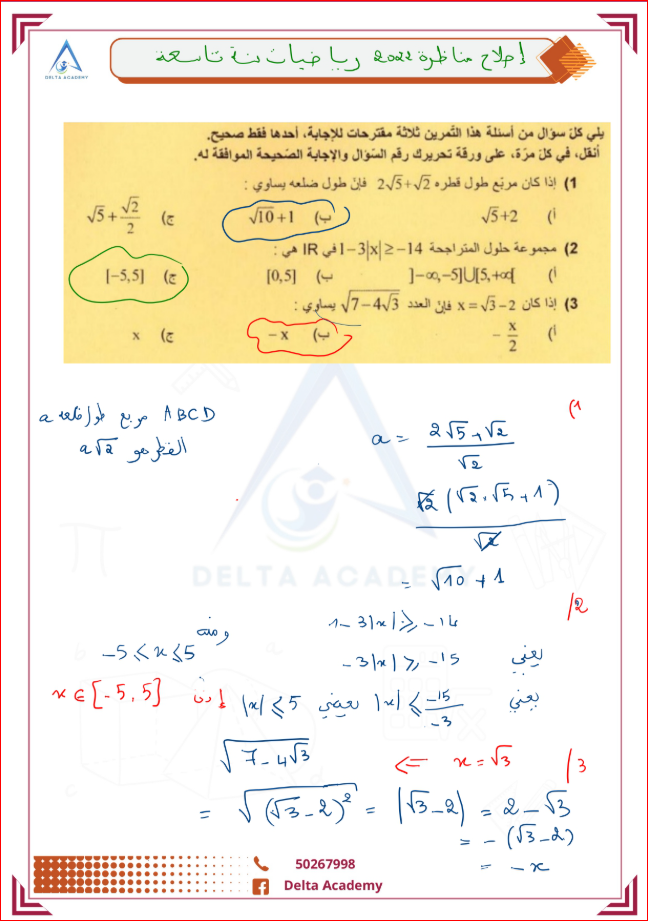 إصلاح مناظرة 2022 رياضيات سنة تاسعة
DELTA ACADEMY
يلي كلّ سؤال من أسئلة هذا التّمرين ثلاثة مقترحات للإجابة، أحدها فقط صحيح.
أنقل، في كلّ مرّة، على ورقة تحريرك رقم السّؤال والإجابة الصّحيحة الموافقة له.
1) إذا كان مربّع طول قطره 2√5+√2 فإنّ طول ضلعه يساوي :
أ) √5+2 ب) √10+1 ج) √5+√2/2
2) مجموعة حلول المتراجحة 1−3|x|≥−14 في IR هي :
أ) ]−∞,−5]U[5,+∞[ ب) [0,5] ج) [−5,5]
3) إذا كان x=√3−2 فإنّ العدد √(7−4√3) يساوي :
أ) −x/2 ب) −x ج) x
1)
ABCD مربع طول ضلعه a
القطر هو a√2
a = (2√5+√2)/√2
√2(√2×√5+1)/√2
= √10+1
2/
1-3|x| ≥ -14
يعني -3|x| ≥ -15
يعني |x| ≤ -15/-3 يعني |x| ≤ 5
ومنه -5 ≤ x ≤ 5
إذن x ∈ [-5,5]
3/
x = √3 ⇐
√(7-4√3)
= √((√3-2)²) = |√3-2| = 2-√3
= -(√3-2)
= -x
DELTA ACADEMY
50267998
Delta Academy